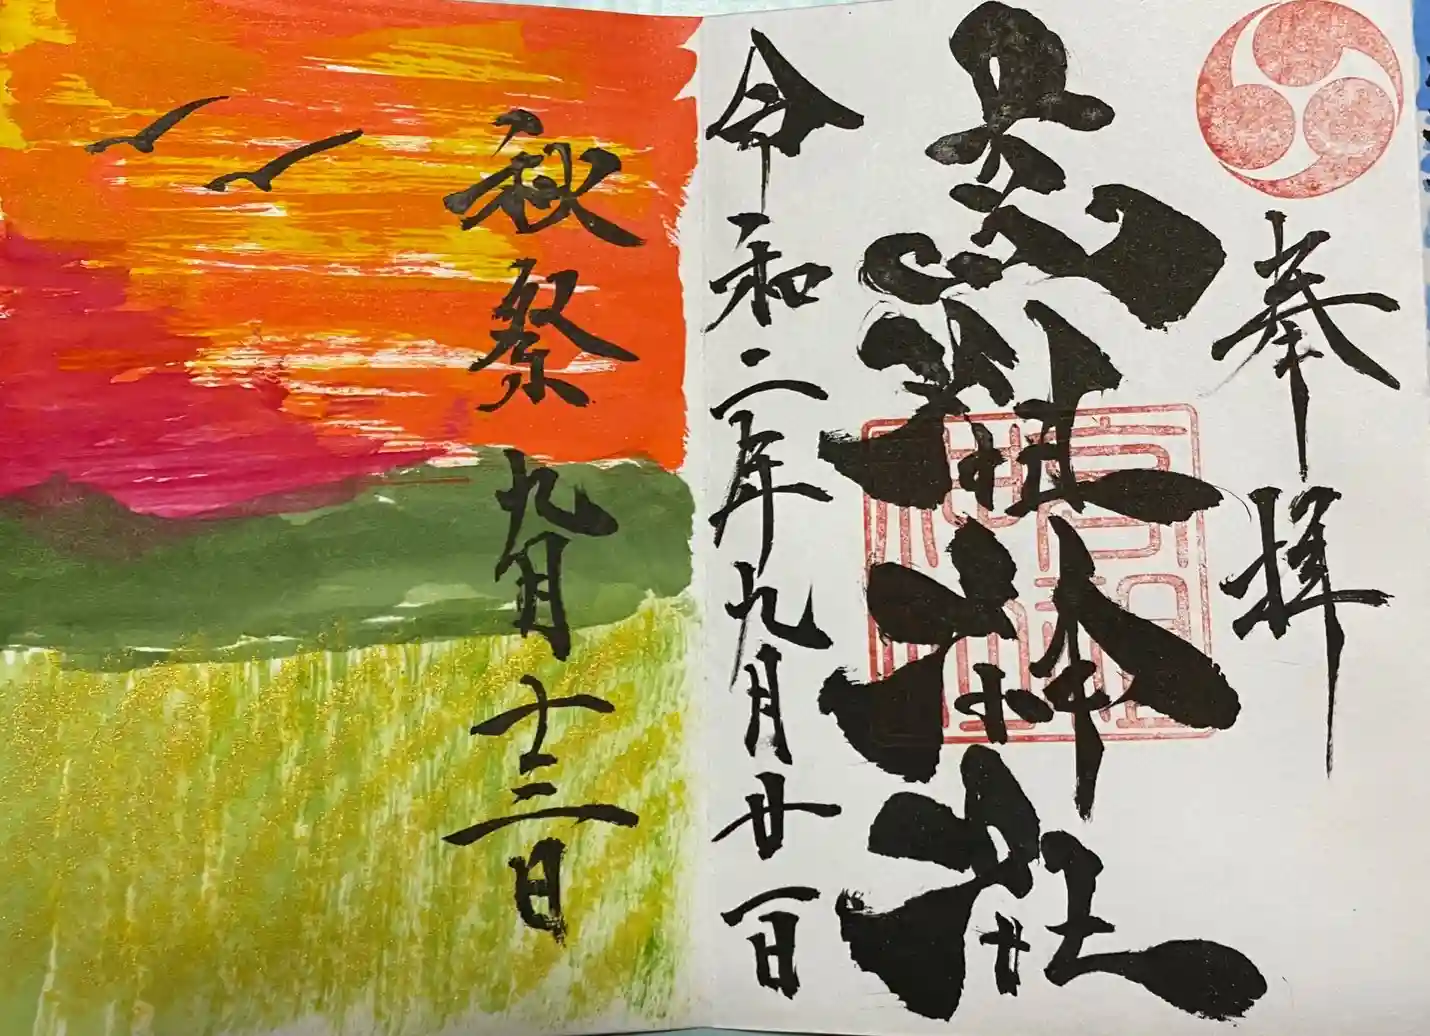 奉拝
高祖神社
令和二年九月廿一日
秋祭 九月十三日